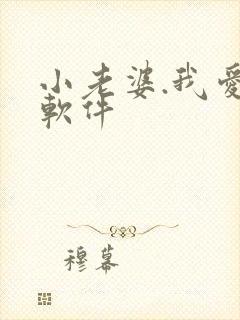 小老婆,我愛
軟件
穆幕